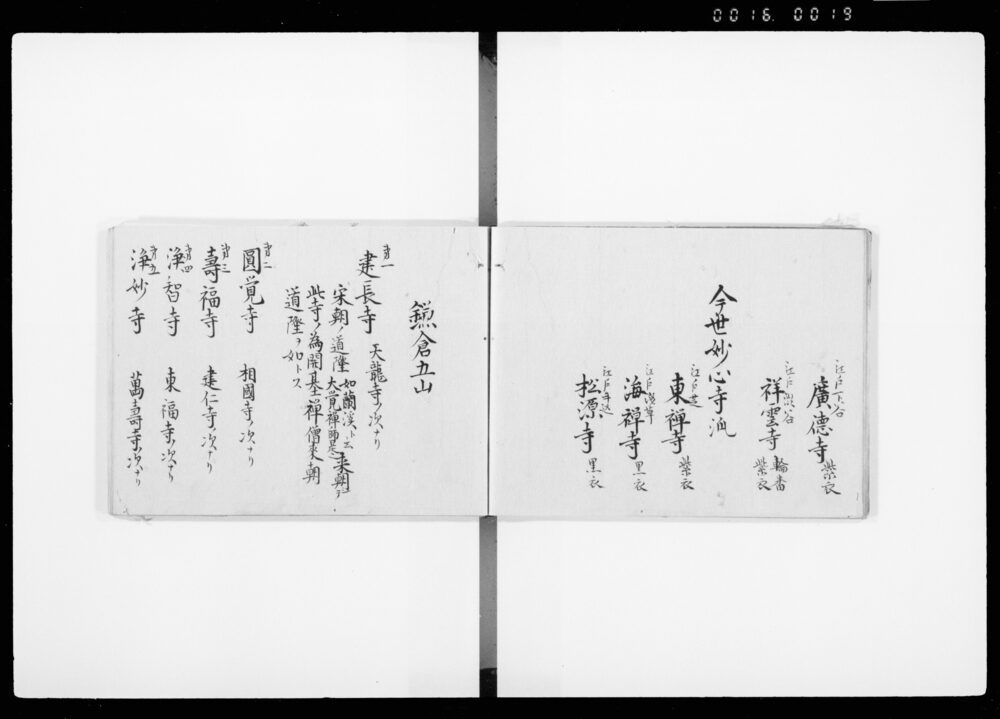 0016. 0019
江戸下谷
廣德寺 紫衣
江戸澁谷
祥雲寺 輪番 紫衣
今世妙心寺派
江戸芝
東禅寺 紫衣
江戸浅草
海禅寺 黒衣
江戸牛込
松源寺 黒衣
鎌倉五山
第一
建長寺 天龍寺ノ次ナリ
宋朝ノ道隆 如蘭渓ト云 大覚禅師是 来朝ヲ
此寺ノ為開基禅僧来朝
道隆ヲ如トス
第二
圓覚寺 相國寺ノ次ナリ
第三
壽福寺 建仁寺ノ次ナリ
第四
浄智寺 東福寺ノ次ナリ
第五
浄妙寺 萬壽寺ノ次ナリ